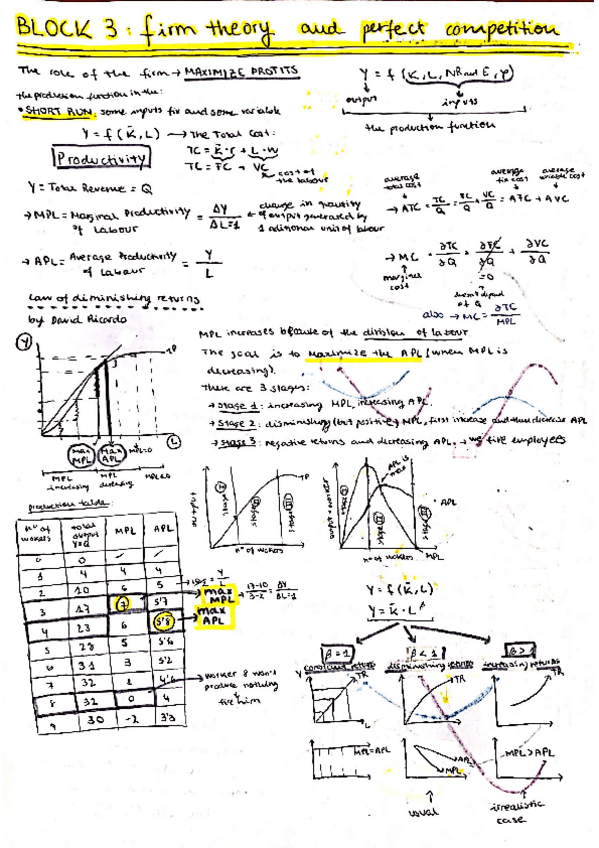 BLOCK 3: firm theory and perfect competition
The role of the firm → MAXIMIZE PROFITS
Y = f (K, L, NR and E, φ)
output
inputs
the production function
the production function in the:
• SHORT RUN: some inputs fix and some variable
Y = f (K̄, L) → The Total Cost:
TC = K̄·r + L·w
TC = FC + VC
cost of the labour
Productivity
Y = Total Revenue = Q
→ MPL = Marginal Productivity of Labour = ΔY / ΔL=1 ← change in quantity of output generated by 1 aditional unit of labour
→ APL = Average Productivity of Labour = Y / L
average total cost
average fix cost
average variable cost
→ ATC = TC/Q = FC/Q + VC/Q = AFC + AVC
→ MC = ∂TC/∂Q = ∂FC/∂Q + ∂VC/∂Q
marginal cost
=0
doesn't depend of Q
also → MC = ∂TC/MPL
Law of diminishing returns
by David Ricardo
MPL increases because of the division of labour
The goal is to maximize the APL (when MPL is decreasing).
there are 3 stages:
→ stage 1: increasing MPL, increasing APL.
→ stage 2: diminishing (but positive) MPL, first increase and then decrease APL
→ stage 3: negative returns and decreasing APL. → we fire employees
Y
TP
L
max MPL
max APL
MPL=0
MPL increasing
MPL decreasing
output
stage I
stage II
stage III
TP
nº of workers
output
worker
stage I
stage II
stage III
APL is max
APL
MPL
nº of workers
production table:
nº of workers | total output Y=Q | MPL | APL
0 | 0 | / | /
1 | 4 | 4 | 4
2 | 10 | 6 | 5
3 | 17 | 7 | 5'7
4 | 23 | 6 | 5'8
5 | 28 | 5 | 5'6
6 | 31 | 3 | 5'2
7 | 32 | 1 | 4'6
8 | 32 | 0 | 4
9 | 30 | -2 | 3'3
Y/L
max MPL
17-10 / 3-2 = ΔY / ΔL=1
max APL
worker 8 won't produce nothing
fire him
Y = f (K̄, L)
Y = K̄ · L^β
β = 1
β < 1
β > 1
constant returns
diminishing returns
increasing returns
Y
TR
L
TR
TR
MPL = APL
APL
MPL
MPL > APL
usual
irrealistic case